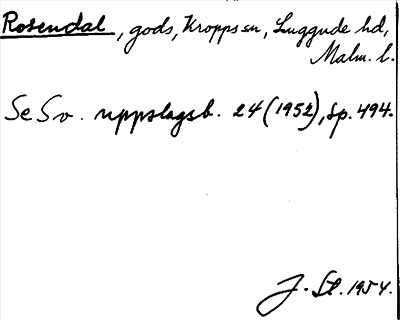 Rosendal, gods, Kropps sn, Luggude hd,
Malm. l.
Se Sv. uppslagsb. 24 (1952), sp. 494.
J. St. 1954.